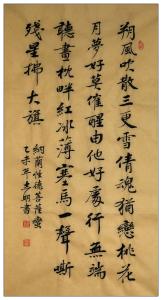 朔風吹散三更雪倩魂猶戀桃花
月夢好莫催醒由他好處行無端
聽畫枕畔紅冰薄塞馬一聲嘶
殘星拂大旗
納蘭性德菩薩蠻
乙未年明書